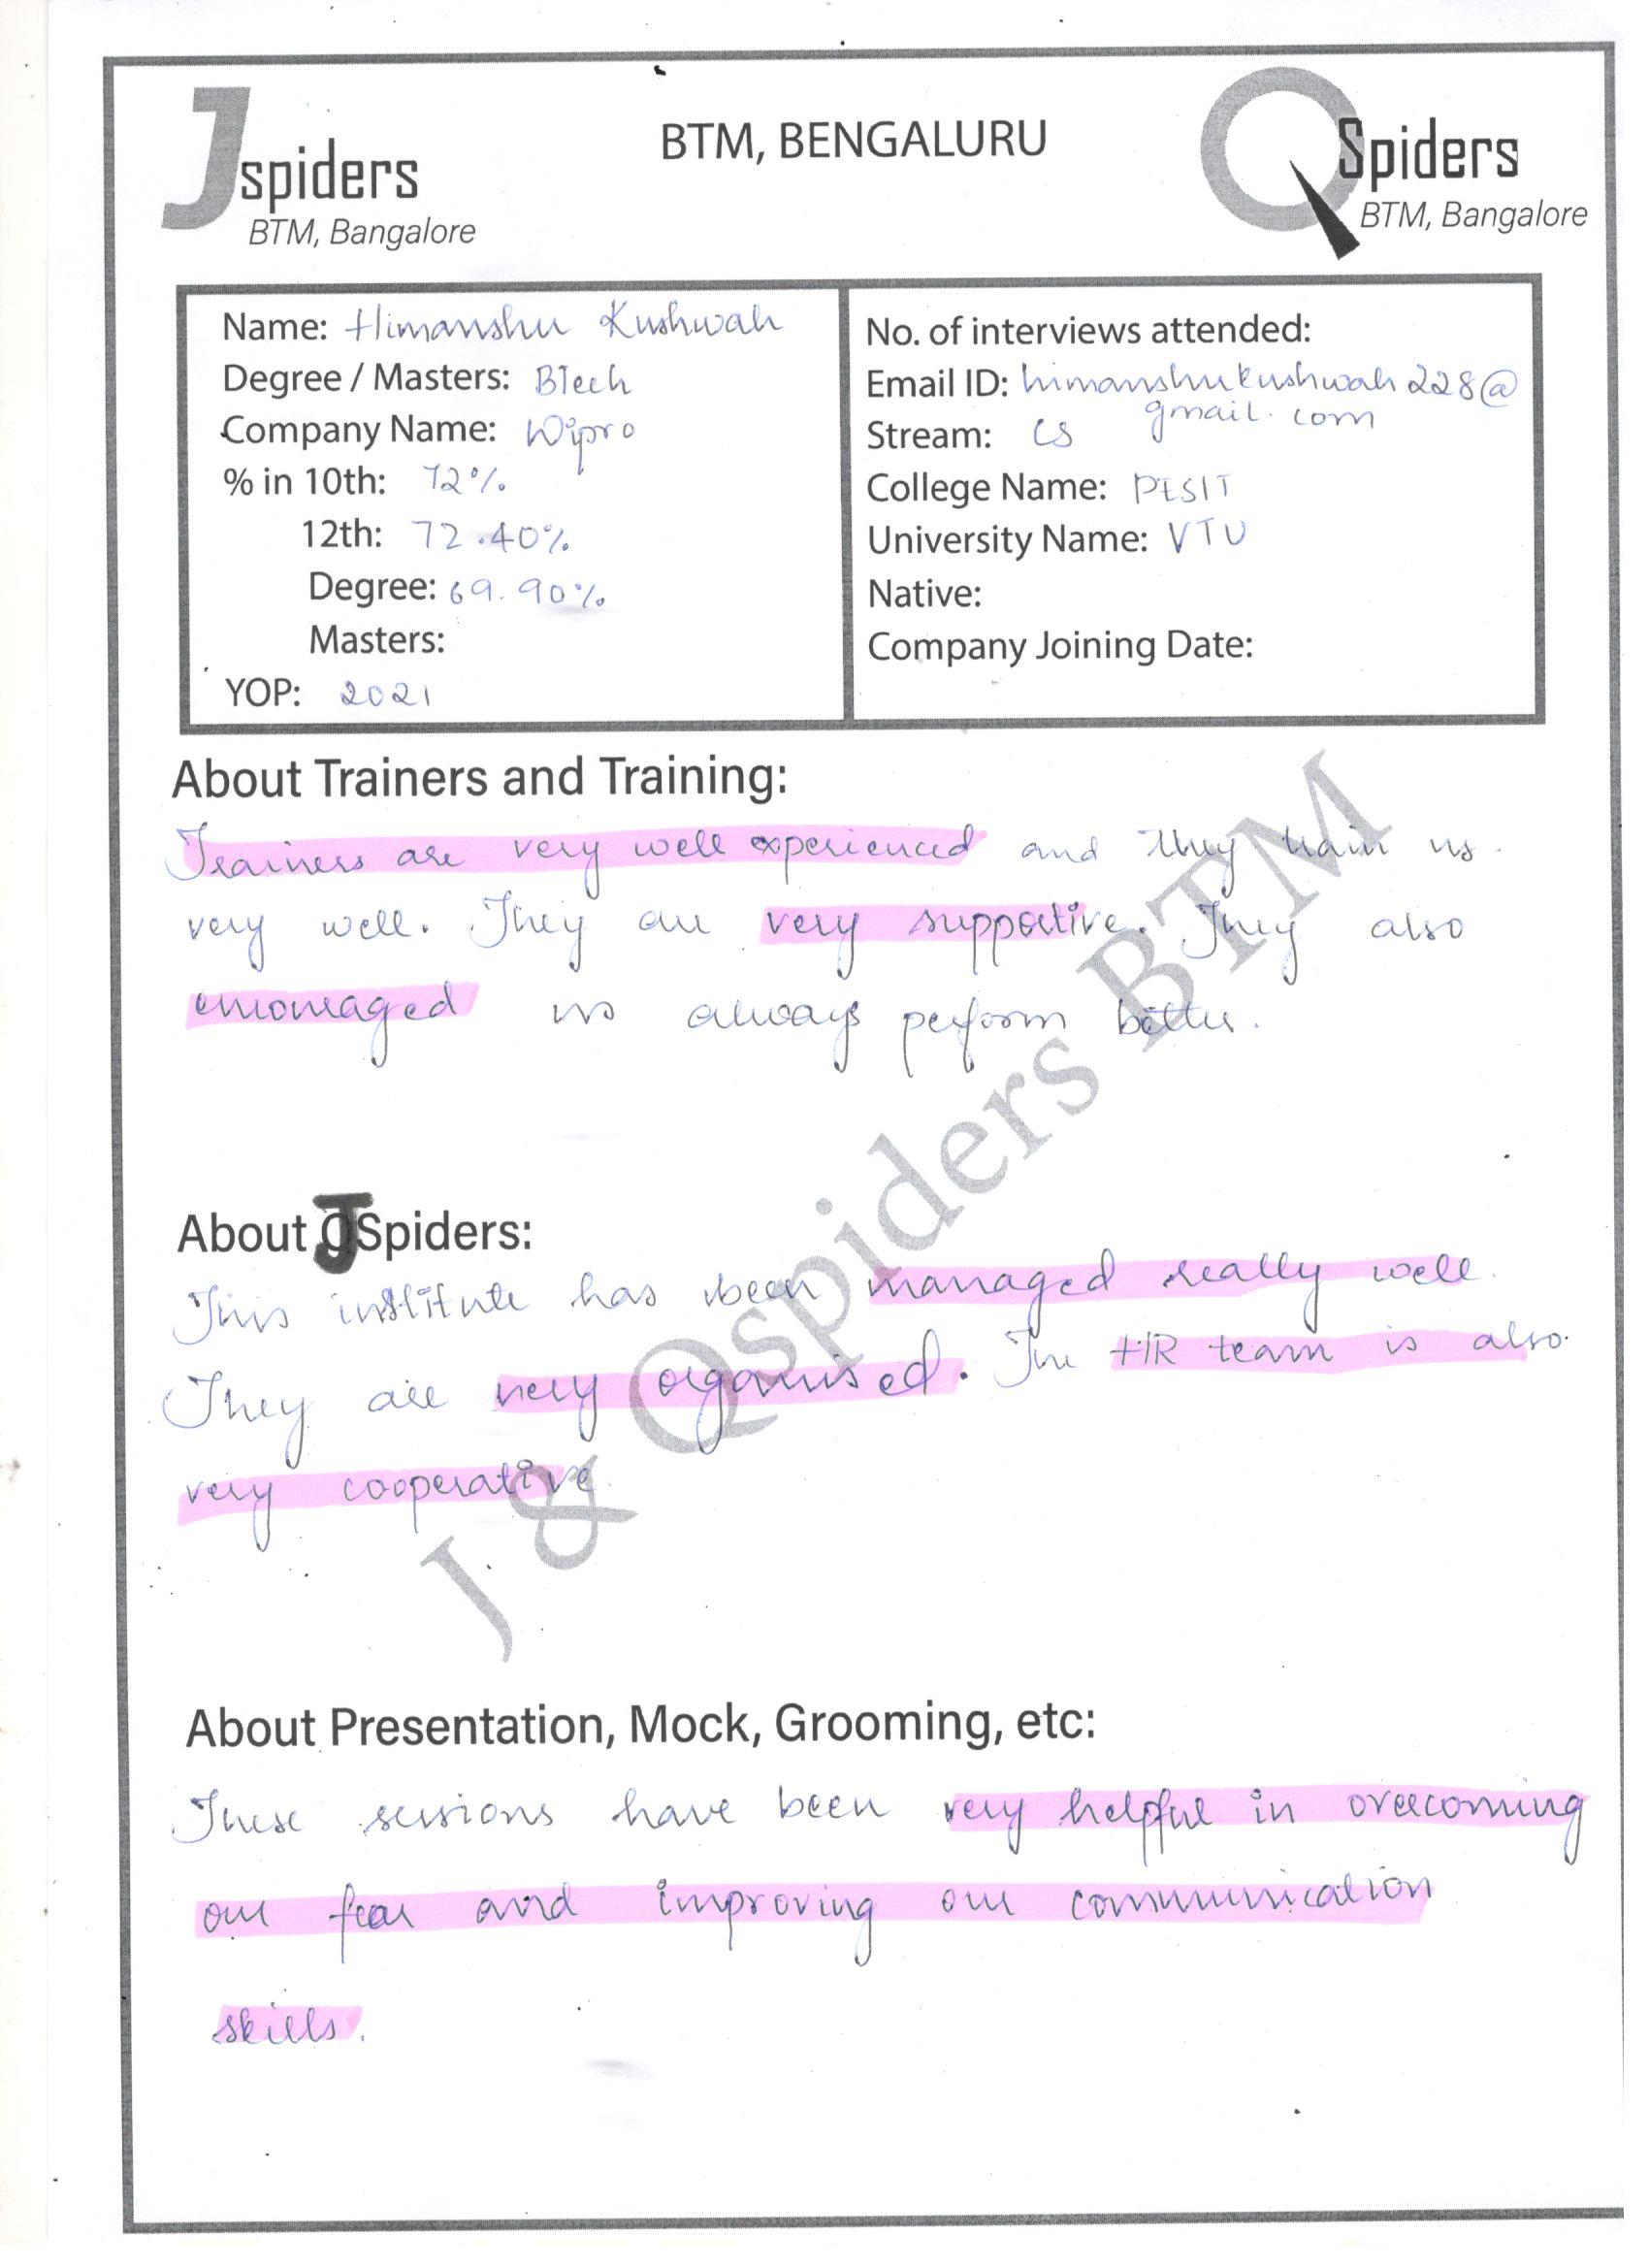 Jspiders
BTM, Bangalore
BTM, BENGALURU
QSpiders
BTM, Bangalore
Name: Himanshu Kushwah
Degree / Masters: BTech
Company Name: Wipro
% in 10th: 72%
12th: 72.40%
Degree: 69.90%
Masters:
YOP: 2021
No. of interviews attended:
Email ID: himanshukushwah228@
gmail.com
Stream: CS
College Name: PESIT
University Name: VTU
Native:
Company Joining Date:
About Trainers and Training:
Trainers are very well experienced and they train us
very well. They are very supportive. They also
encouraged us always perform better.
About JSpiders:
This institute has been managed really well.
They are very organised. The HR team is also
very cooperative
About Presentation, Mock, Grooming, etc:
These sessions have been very helpful in overcoming
our fear and improving our communication
skills.
J & Qspiders BTM